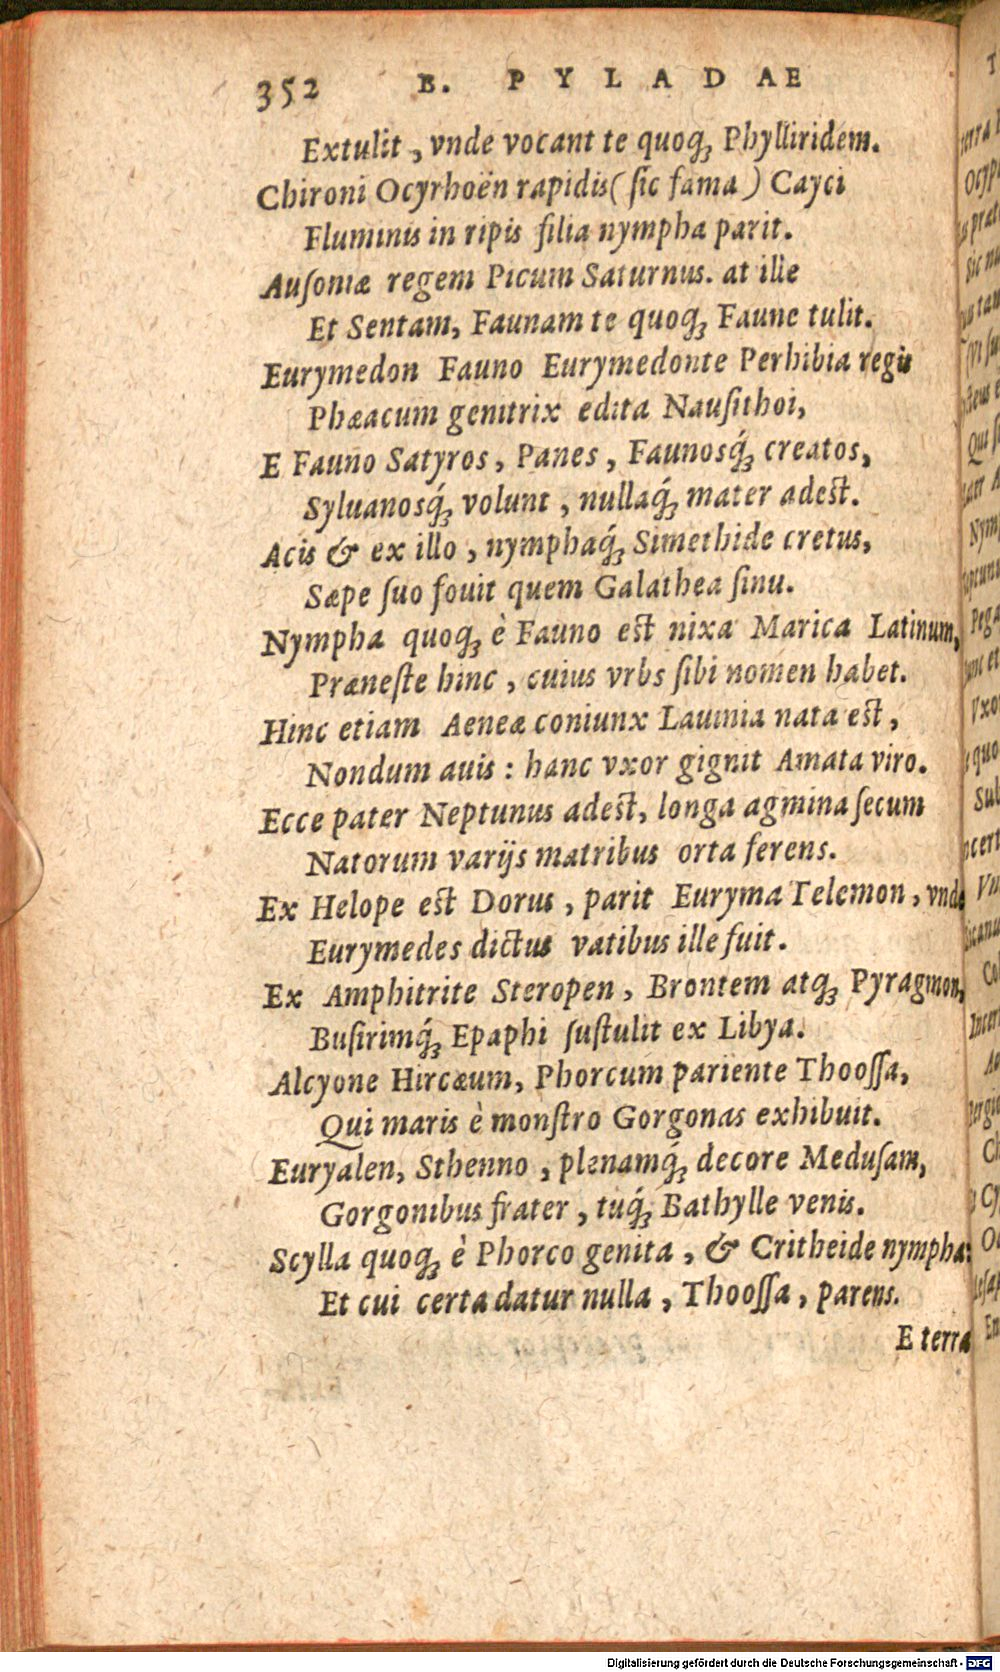 352 B. PYLADAE
Extulit, vnde vocant te quoq; Phylliridem.
Chironi Ocyrhoën rapidis (sic fama) Cayci
Fluminis in ripis filia nympha parit.
Ausoniæ regem Picum Saturnus. at ille
Et Sentam, Faunam te quoq; Faune tulit.
Eurymedon Fauno Eurymedonte Perhibia regis
Phæacum genitrix edita Nausithoi,
E Fauno Satyros, Panes, Faunosq́; creatos,
Syluanosq́; volunt, nullaq́; mater adest.
Acis & ex illo, nymphaq́; Simethide cretus,
Sæpe suo fouit quem Galathea sinu.
Nympha quoq; è Fauno est nixa Marica Latinum,
Præneste hinc, cuius vrbs sibi nomen habet.
Hinc etiam Aeneæ coniunx Lauinia nata est,
Nondum auis: hanc vxor gignit Amata viro.
Ecce pater Neptunus adest, longa agmina secum
Natorum varijs matribus orta ferens.
Ex Helope est Dorus, parit Euryma Telemon, vnde
Eurymedes dictus vatibus ille fuit.
Ex Amphitrite Steropen, Brontem atq; Pyragmon,
Busirimq́; Epaphi sustulit ex Libya.
Alcyone Hircæum, Phorcum pariente Thoossa,
Qui maris è monstro Gorgonas exhibuit.
Euryalen, Sthenno, plenamq́; decore Medusam,
Gorgonibus frater, tuq́; Bathylle venis.
Scylla quoq; è Phorco genita, & Critheide nympha:
Et cui certa datur nulla, Thoossa, parens.
E terra
Digitalisierung gefördert durch die Deutsche Forschungsgemeinschaft - DFG